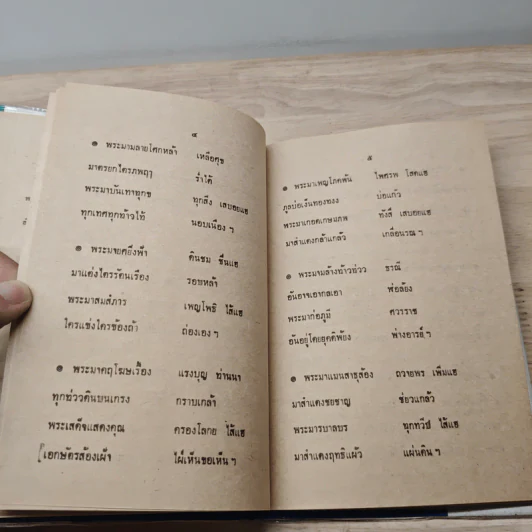 ๔
๑ พระมามลายโศกหล้า เหลือศุข
มาตรยกไตรภพฤๅ ร่ำได้
พระมาบันเทาทุกข ทุกสิ่ง เสบอยแฮ
ทุกเทศทุกท้าวไท้ นอบเนือง ฯ
๑ พระมายศยิ่งฟ้า ดินชม ชื่นแฮ
มาแต่งไตรรัตนเรือง รอบหล้า
พระมาสมสํภาร เพญโพธิ ไส้แฮ
ใครแข่งใครข้องถ้า ถ่องเอง ฯ
๑ พระมาคฤโฆษเรื้อง แรงบุญ ท่านนา
ทุกท่ววดินบนเกรง กราบเกล้า
พระเสด็จแสดงคุณ ครองโลกย ไส้แฮ
เอกษัตรส้องเฝ้า ไฝ่เห็นขอเห็น ฯ
๕
๑ พระมาเพญโภคพ้น ไพศรพ โสดแฮ
ภูลบ่อเงินทองทงง บ่อแก้ว
พระมาเกอดเกษมภพ ทังสี่ เสบอยแฮ
มาสำแดงกล้าแกล้ว เกลื่อนรณ ฯ
๑ พระมาล้างท้าวท่วว ธาณี
อันอาจเอากลเอา พ่อล้อง
พระมาก่อภูมี ศวาราช
อันอยู่โดยยุคดิพ้อง พ่างอารย์ ฯ
๑ พระมาแมนสาธุส้อง ถวายพร เพิ่มแฮ
มาสำแดงชยชาญ ช่ยวแกล้ว
พระมารบาลบร ทุกทวีป ไส้แฮ
มาสำแดงฤทธิแผ้ว แผ่นดิน ฯ